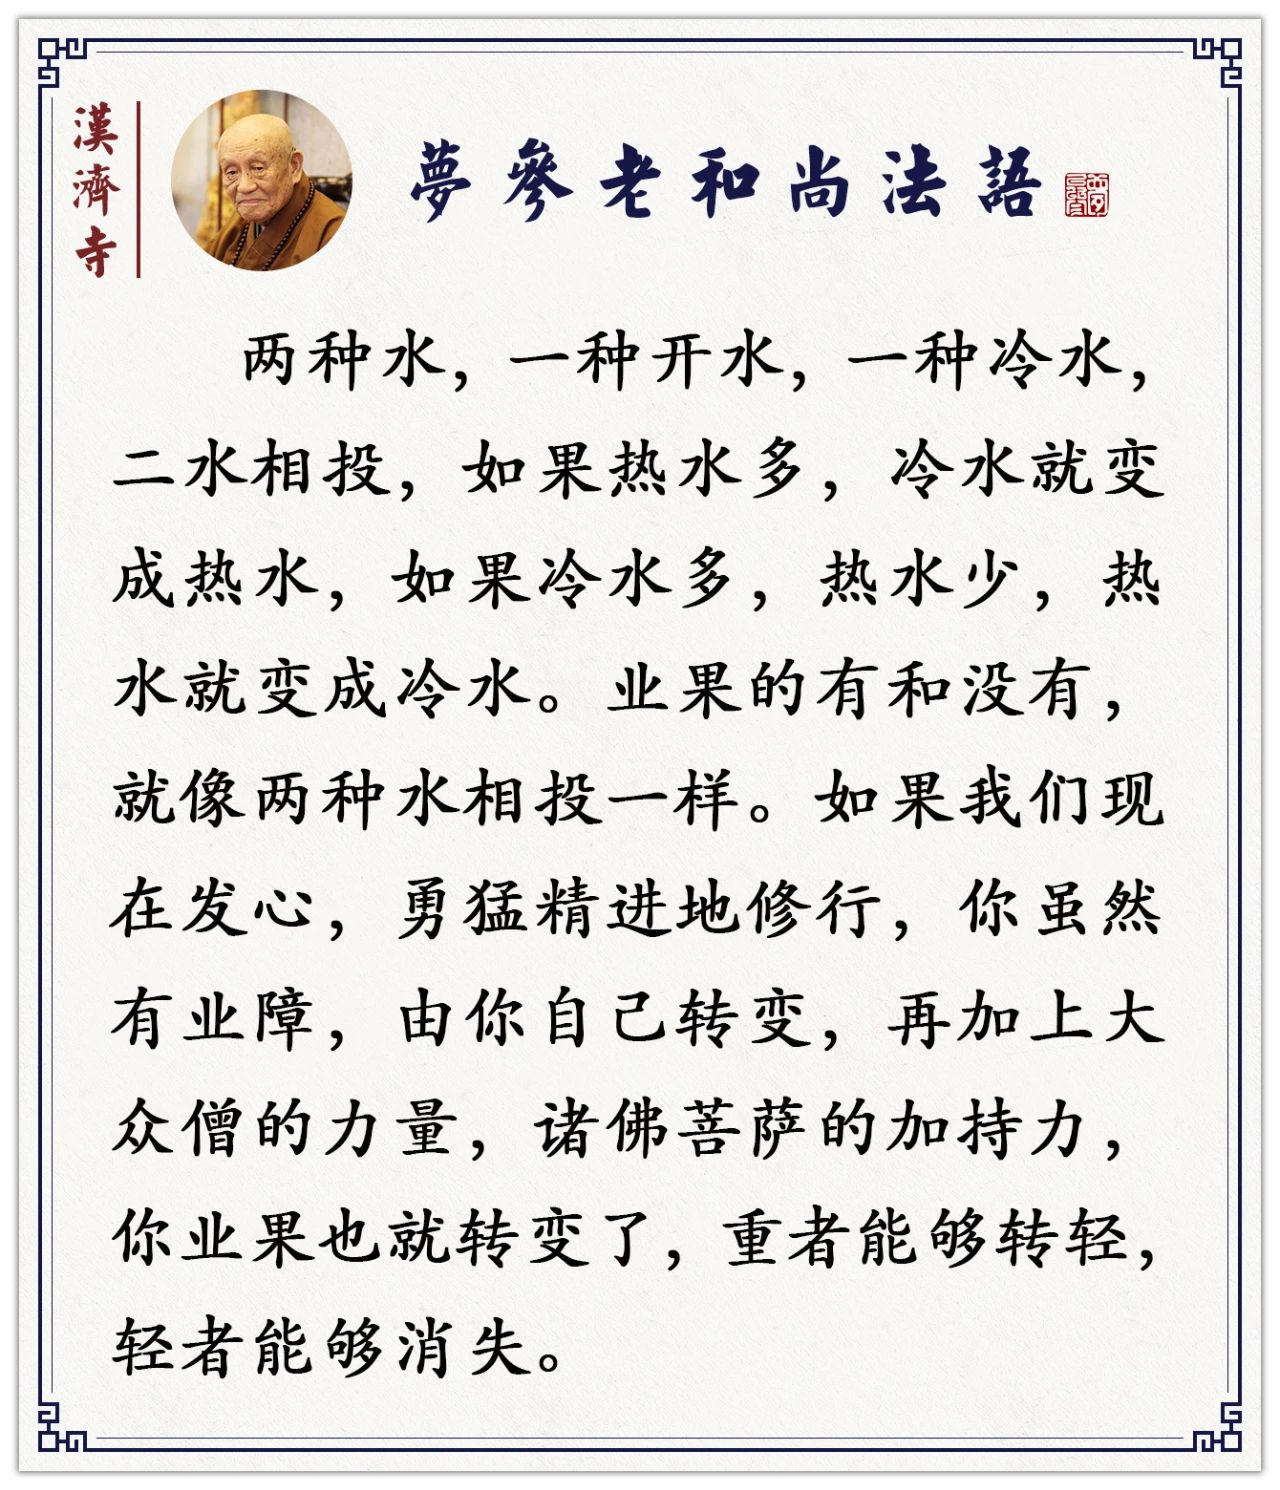 漢濟寺
夢參老和尚法語
两种水，一种开水，一种冷水，
二水相投，如果热水多，冷水就变
成热水，如果冷水多，热水少，热
水就变成冷水。业果的有和没有，
就像两种水相投一样。如果我们现
在发心，勇猛精进地修行，你虽然
有业障，由你自己转变，再加上大
众僧的力量，诸佛菩萨的加持力，
你业果也就转变了，重者能够转轻，
轻者能够消失。